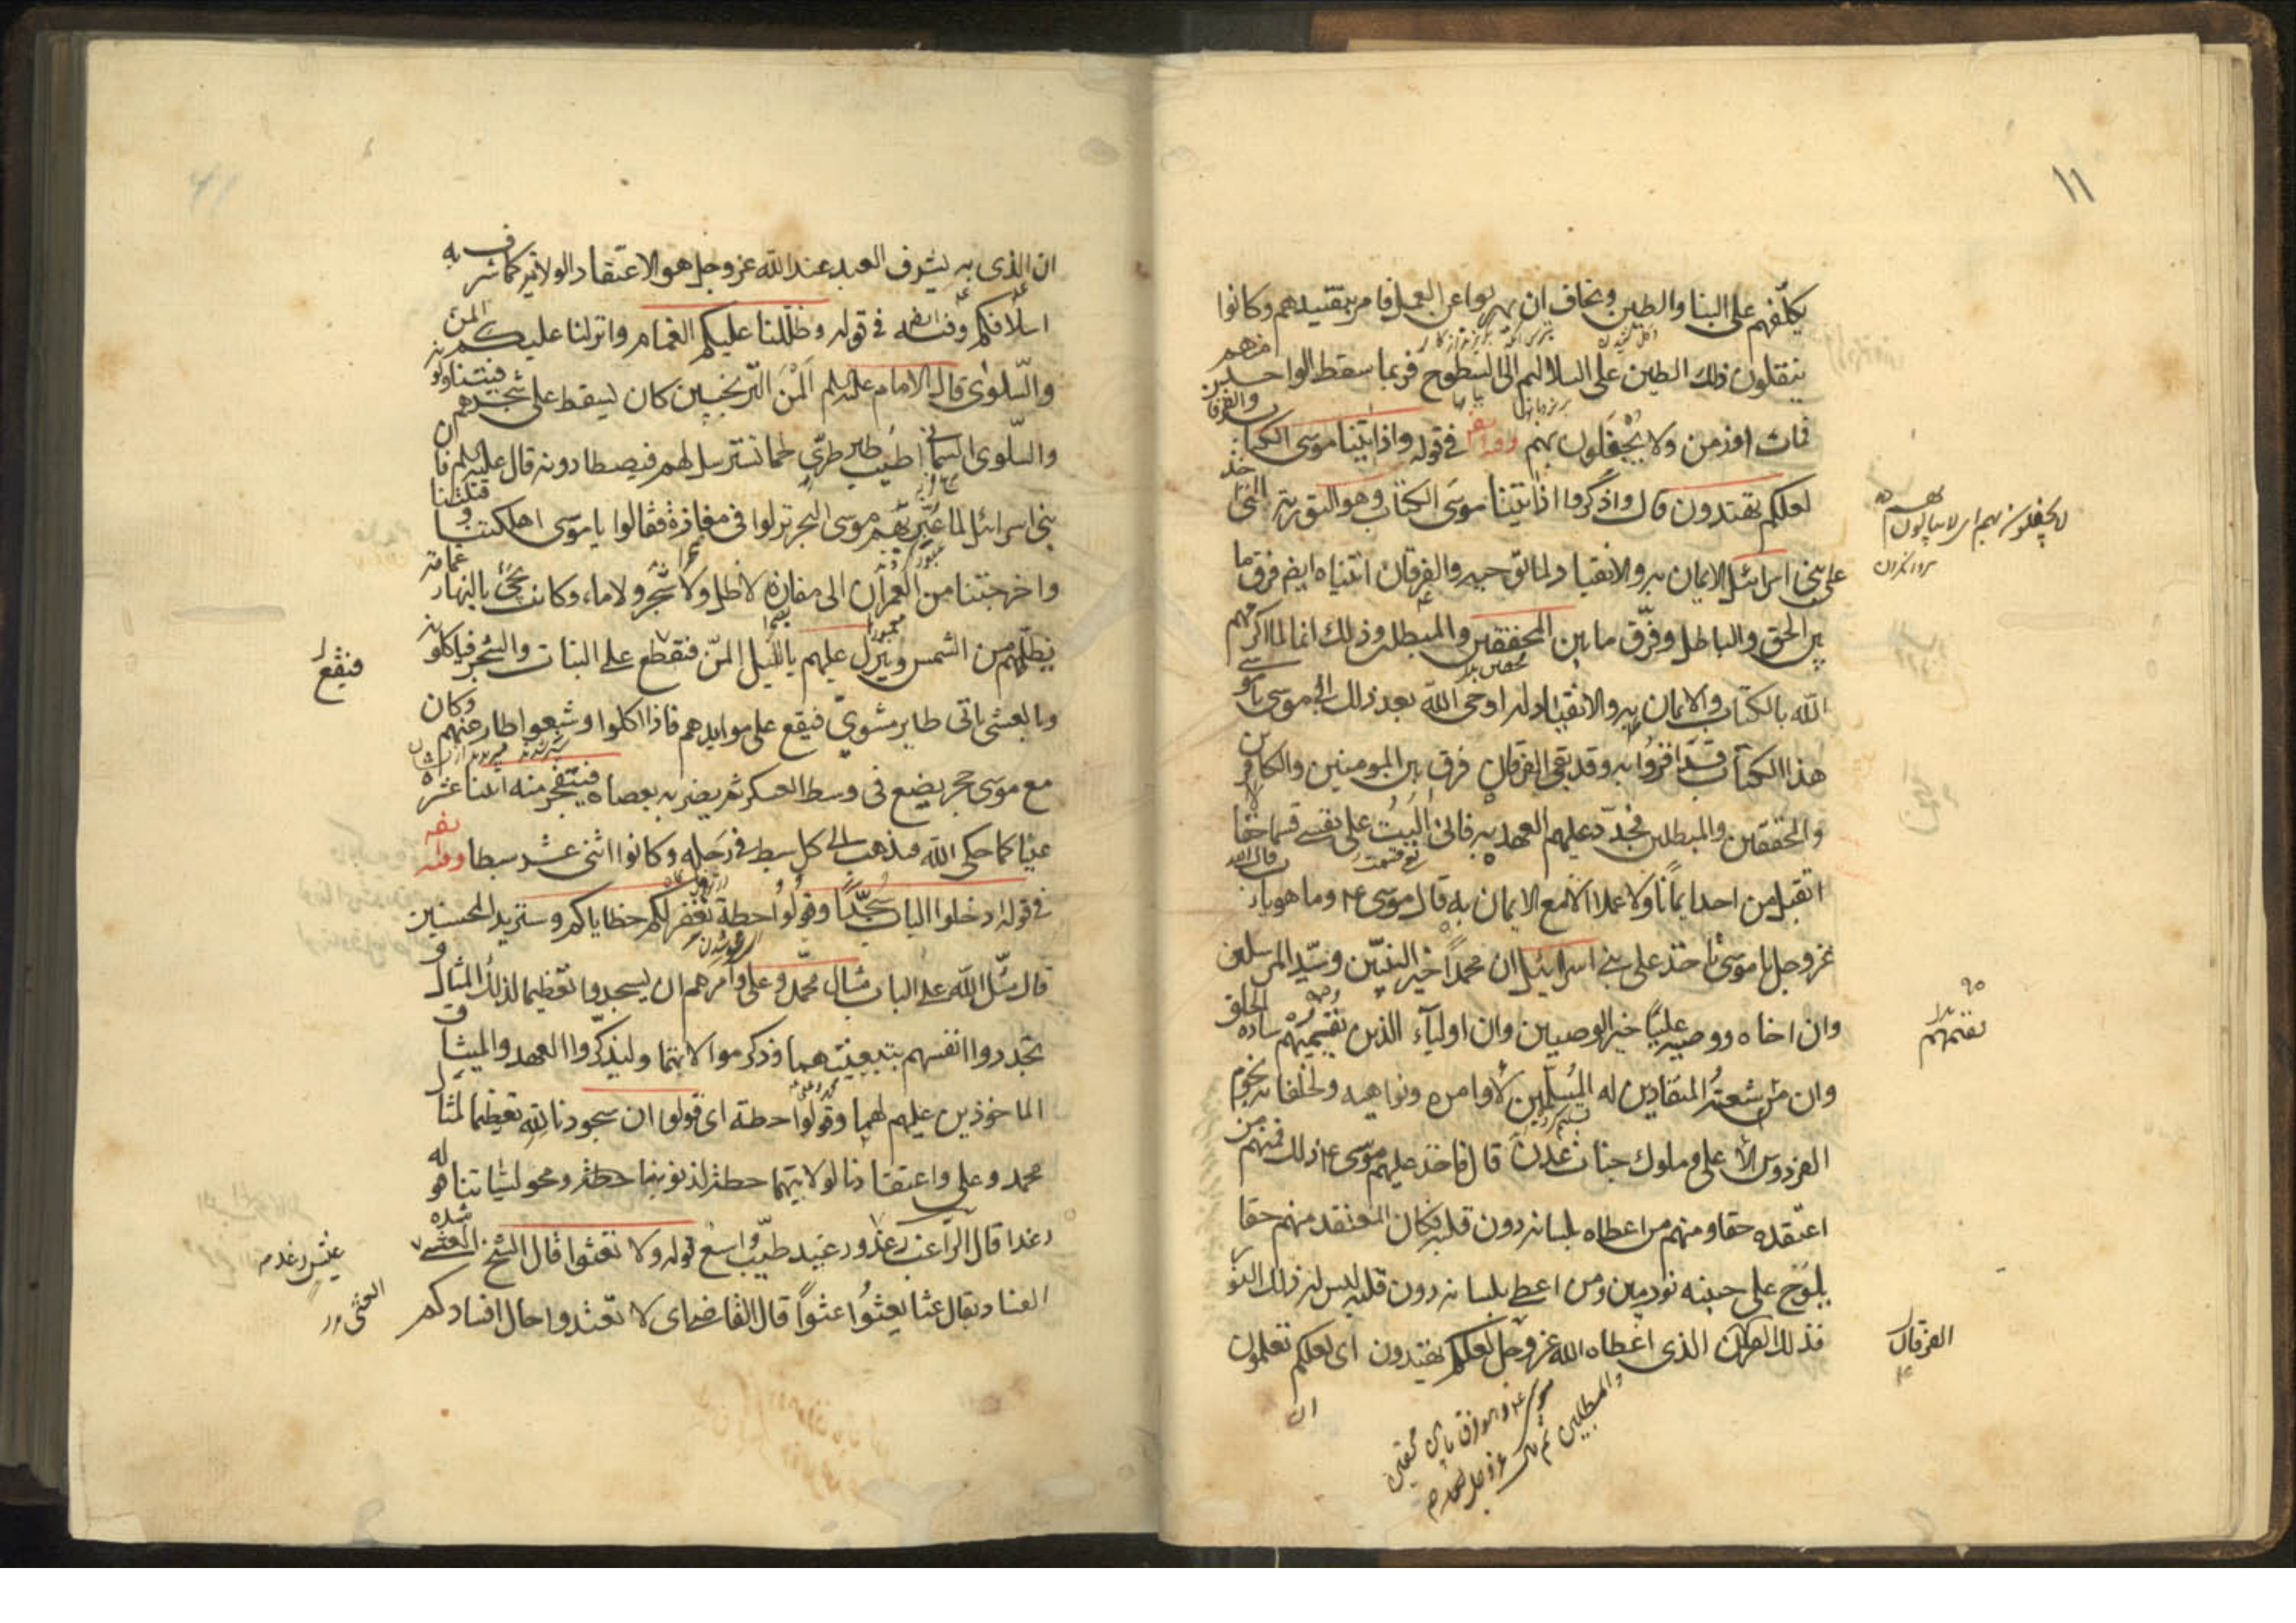 ١١
يكلّفهم على البنا والطين ويخاف ان يهربوا عن العمل فامر بتقييدهم وكانوا
ينقلون ذلك الطين على السلاليم الى السطوح فربما سقط الواحد منهم
فمات او زمن ولا يحفلون بهم وفيه ايضا في قوله واذ اتينا موسى الكتاب والفرقان
لعلكم تهتدون قال واذكروا اذ اتينا موسى الكتاب وهو التورية الذي اخذ
على بني اسرائيل الايمان به والانقياد لما توجبه والفرقان اتيناه ايضا فرق ما
بين الحق والباطل وفرّق ما بين المحققين والمبطلين وذلك انه لما اكرمهم
الله بالكتاب والايمان به والانقياد له اوحى الله بعد ذلك الى موسى يا موسى
هذا الكتاب قد اقروا به وقد بقى الفرقان فرق بين المومنين والكافرين
والمحققين والمبطلين فجدّد عليهم العهد به فانى اليت على نفسى قسما حقا
لا اتقبل من احد ايمانا ولا عملا الا مع الايمان به قال موسى ع وما هو يا رب قال الله
عز وجل يا موسى تاخذ على بني اسرائيل ان محمدا خير النبيّين وسيّد المرسلين
وان اخاه ووصيه عليّا خير الوصيين وان اولياء الذين يقيمهم سادة الخلق
وان من شيعته المنقادين له المسلمين لاوامره ونواهيه ولخلفائه نجوم
الفردوس الاعلى وملوك جنات عدن قال فاخذ عليهم موسى ع ذلك فمنهم من
اعتقده حقا ومنهم من اعطاه بلسانه دون قلبه فكان المعتقد منهم حقا
يلوح على جبينه نور مبين ومن اعطى بلسانه دون قلبه ليس له ذلك النور
فذلك الفرقان الذى اعطاه الله عز وجل لعلكم تهتدون اى لعلكم تعلمون
ان
الفرقان
ان الذى به يشرف العبد عند الله عز وجل هو الاعتقاد الولاية كما شرف به
اسلافكم وفيه ايضا في قوله وظللنا عليكم الغمام وانزلنا عليكم المن
والسّلوى قال الامام عليه السلام المنّ الترنجبين كان يسقط على شجرهم فيتناولونه
والسّلوى السمانى اطيب طاير طرىّ لحما تسترسل لهم فيصطادونه قال عليه السلام فان
بني اسرائيل لما عبّر بهم موسى البحر نزلوا في مفازة فقالوا يا موسى اهلكتنا وقتلتنا
واخرجتنا من العمران الى مفازة لا ظل ولا شجر ولا ماء، وكانت تجئ بالنهار غمامة
تظلّهم من الشمس وينزل عليهم بالليل المنّ فيقطع على النبات والشجر فياكلونه
فيقع
وبالعشى ياتى طاير مشوىّ فيقع على موايدهم فاذا اكلوا وشبعوا طار عنهم وكان
مع موسى حجر يضع فى وسط العسكر ثم يضربه بعصاه فينفجر منه اثنا عشرة
عينا كما حكى الله فيذهب الى كل سبط فى رحله وكانوا اثنى عشر سبطا وفيه
في قوله ادخلوا الباب سجّدًا وقولوا حطة نغفر لكم خطاياكم وسنزيد المحسنين
قال مثّل الله على الباب مثال محمّد وعلى وامرهم ان يسجدوا تعظيما لذلك المثال و
يجددوا انفسهم بتبعيتهما وذكر موالاتهما وليذكّروا العهد والميثاق
الماخوذين عليهم لهما وقولوا حطة اى قولوا ان سجودنا لله تعظيما لمثال
محمد وعلى واعتقادنا لولايتهما حطة لذنوبنا حطة ومحو لسيئاتنا قوله
رغدا قال الراغب رغد ورغيد طيّب واسع قوله ولا تعثوا قال الشيخ العثى
الفساد يقال عثا يعثوا عثوّا قال القاضى اى لا تعتدوا حال افسادكم